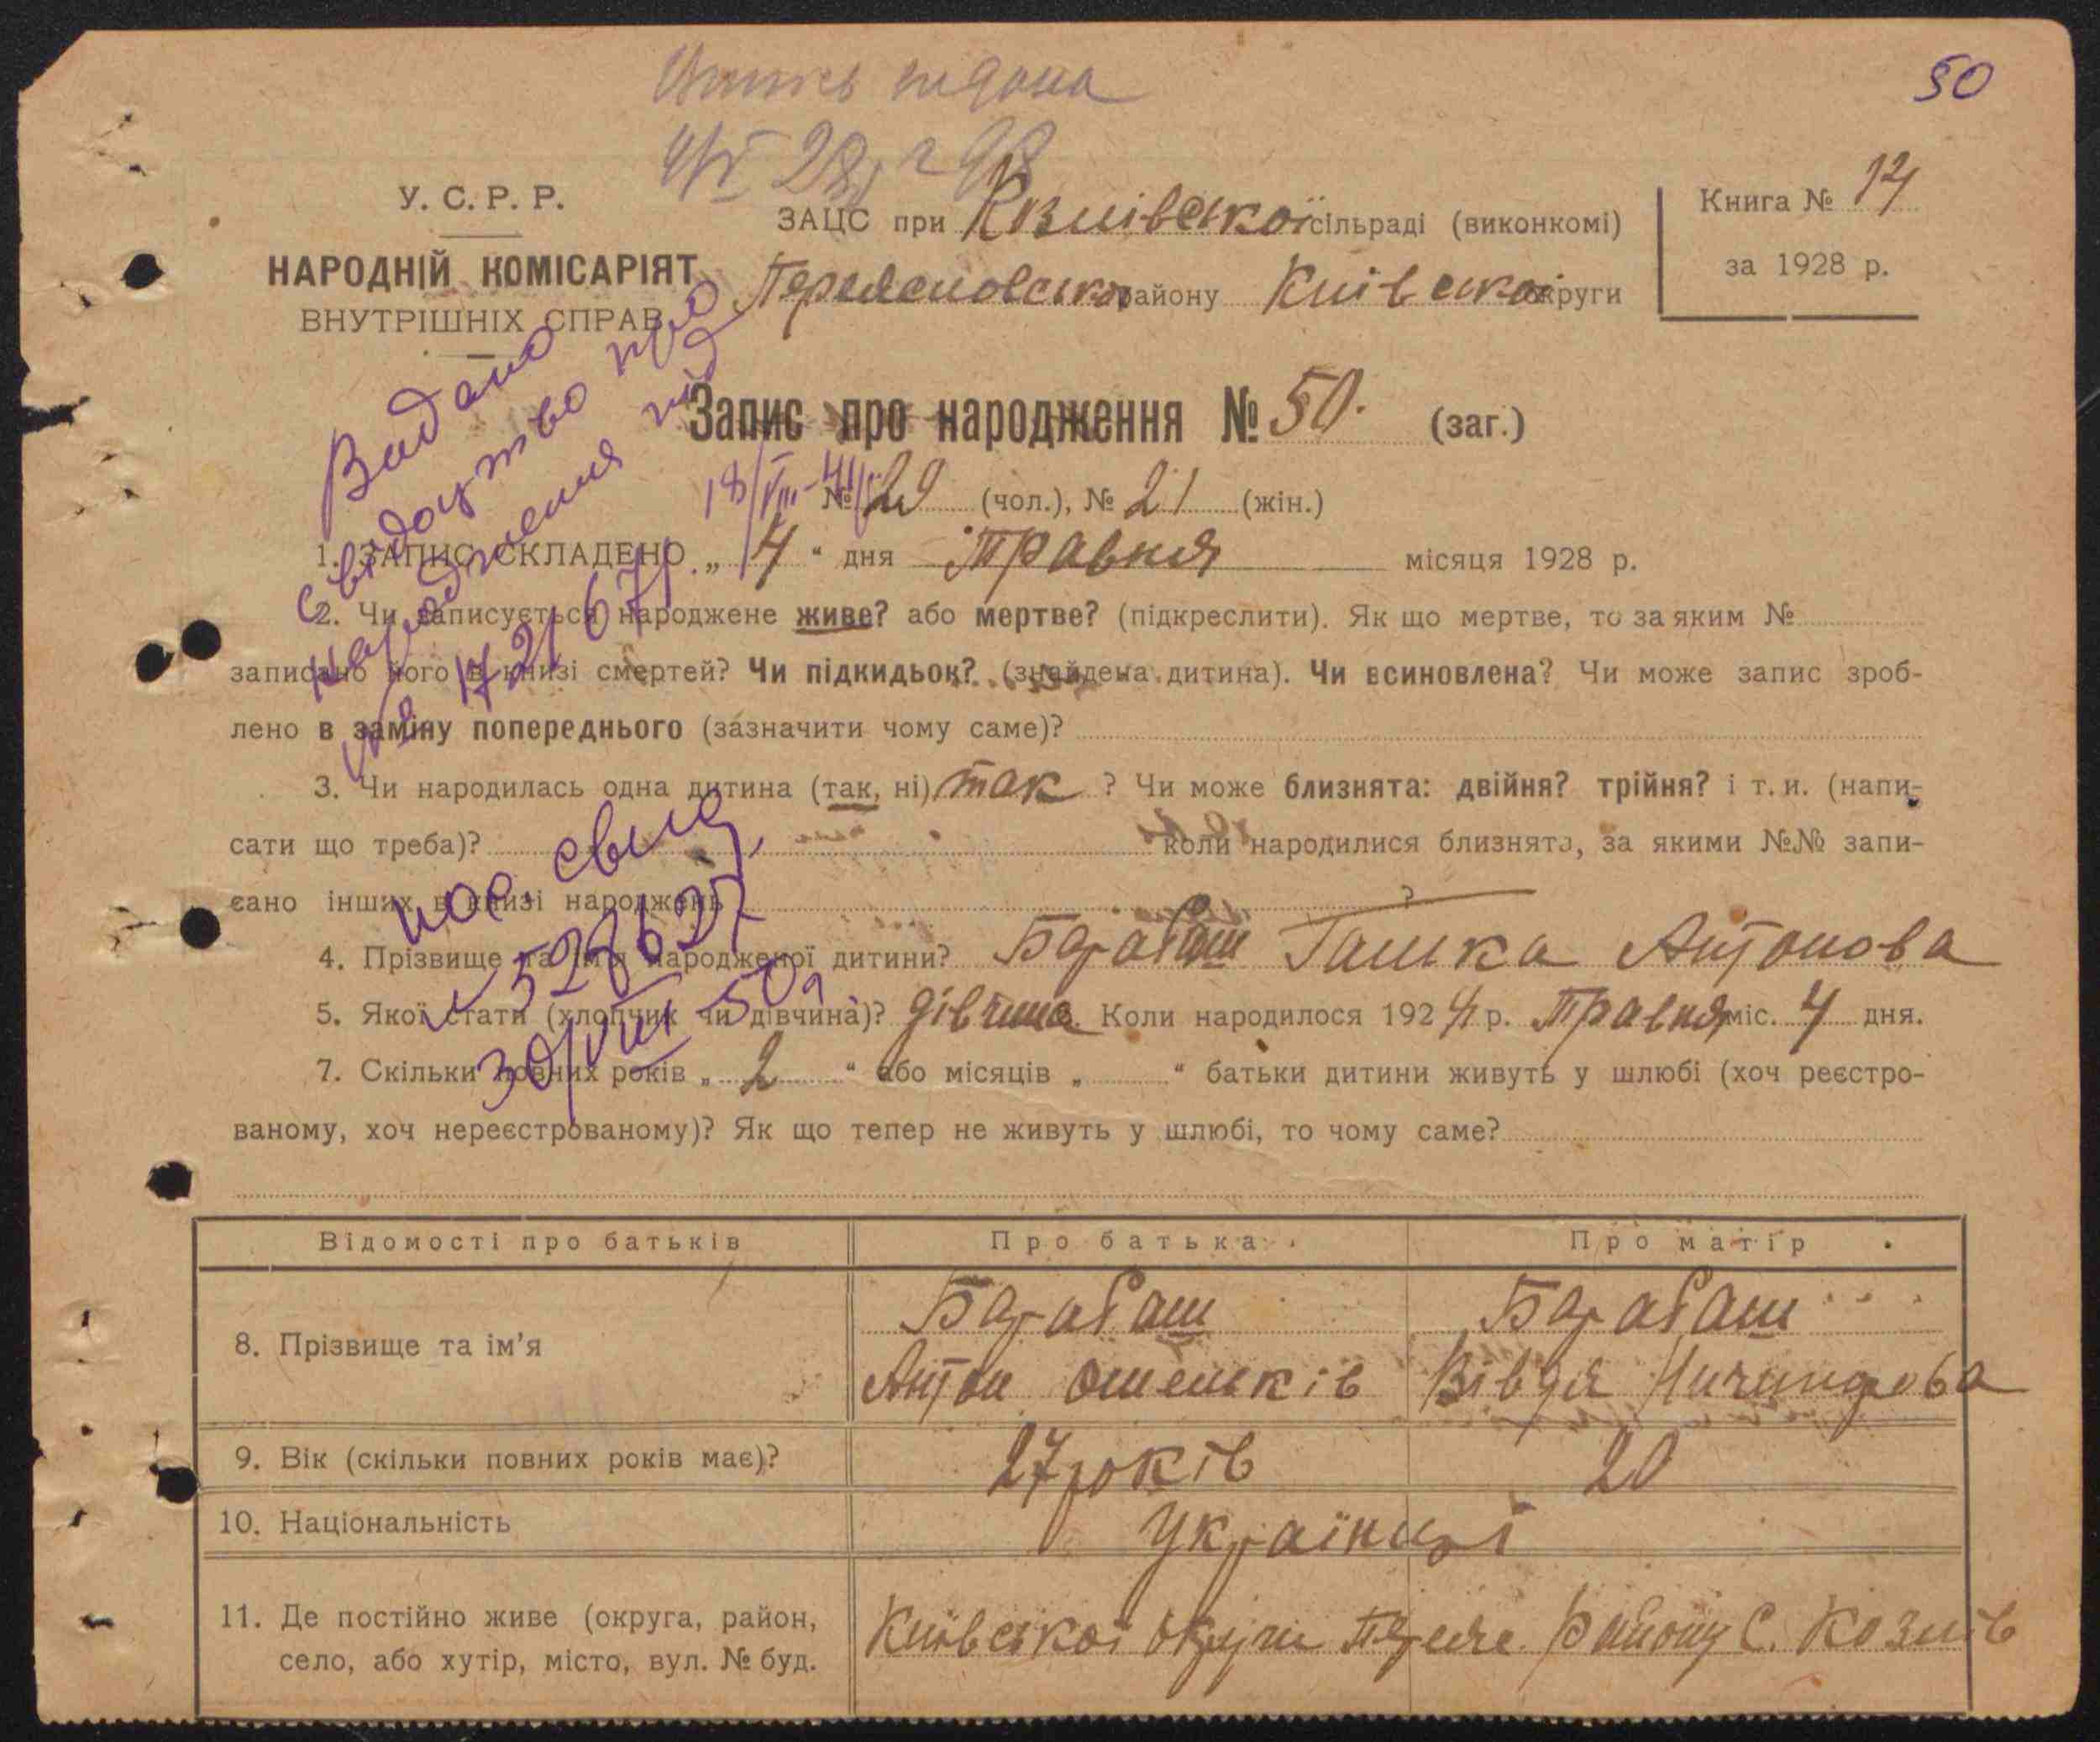 50
У. С. Р. Р.
НАРОДНІЙ КОМІСАРІЯТ
ВНУТРІШНІХ СПРАВ
ЗАЦС при Кзнівської сільраді (виконкомі)
району Київської округи
Книга № 14
за 1928 р.
Запис про народження № 50. (заг.)
№ 29 (чол.), № 21 (жін.)
Видано
свідоцтво про
народження під
18/VIII-41
1. ЗАПИС СКЛАДЕНО „ 4 “ дня травня місяця 1928 р.
2. Чи записується народжене живе? або мертве? (підкреслити). Як що мертве, то за яким №
записано його в книзі смертей? Чи підкидьок? (знайдена дитина). Чи всиновлена? Чи може запис зроб-
лено в заміну попереднього (зазначити чому саме)?
3. Чи народилась одна дитина (так, ні) так ? Чи може близнята: двійня? трійня? і т. и. (напи-
сати що треба)? коли народилися близнята, за якими №№ запи-
сано інших в книзі народжень ?
4. Прізвище та ім'я народженої дитини? Барабаш Гашка Антонова
5. Якої стати (хлопчик чи дівчина)? дівчина 6. Коли народилося 1924 р. травня міс. 4 дня.
7. Скільки повних років „ 2 “ або місяців „ “ батьки дитини живуть у шлюбі (хоч реєстро-
ваному, хоч нереєстрованому)? Як що тепер не живуть у шлюбі, то чому саме?
пов. свид
30/VIII 50
Відомості про батьків Про батька Про матір
8. Прізвище та ім'я Барабаш Барабаш
Антон Омельків Вівдя Ничипорова
9. Вік (скільки повних років має)? 27 років 20
10. Національність Українці
11. Де постійно живе (округа, район,
село, або хутір, місто, вул. № буд. Київської округи району с. Кознів